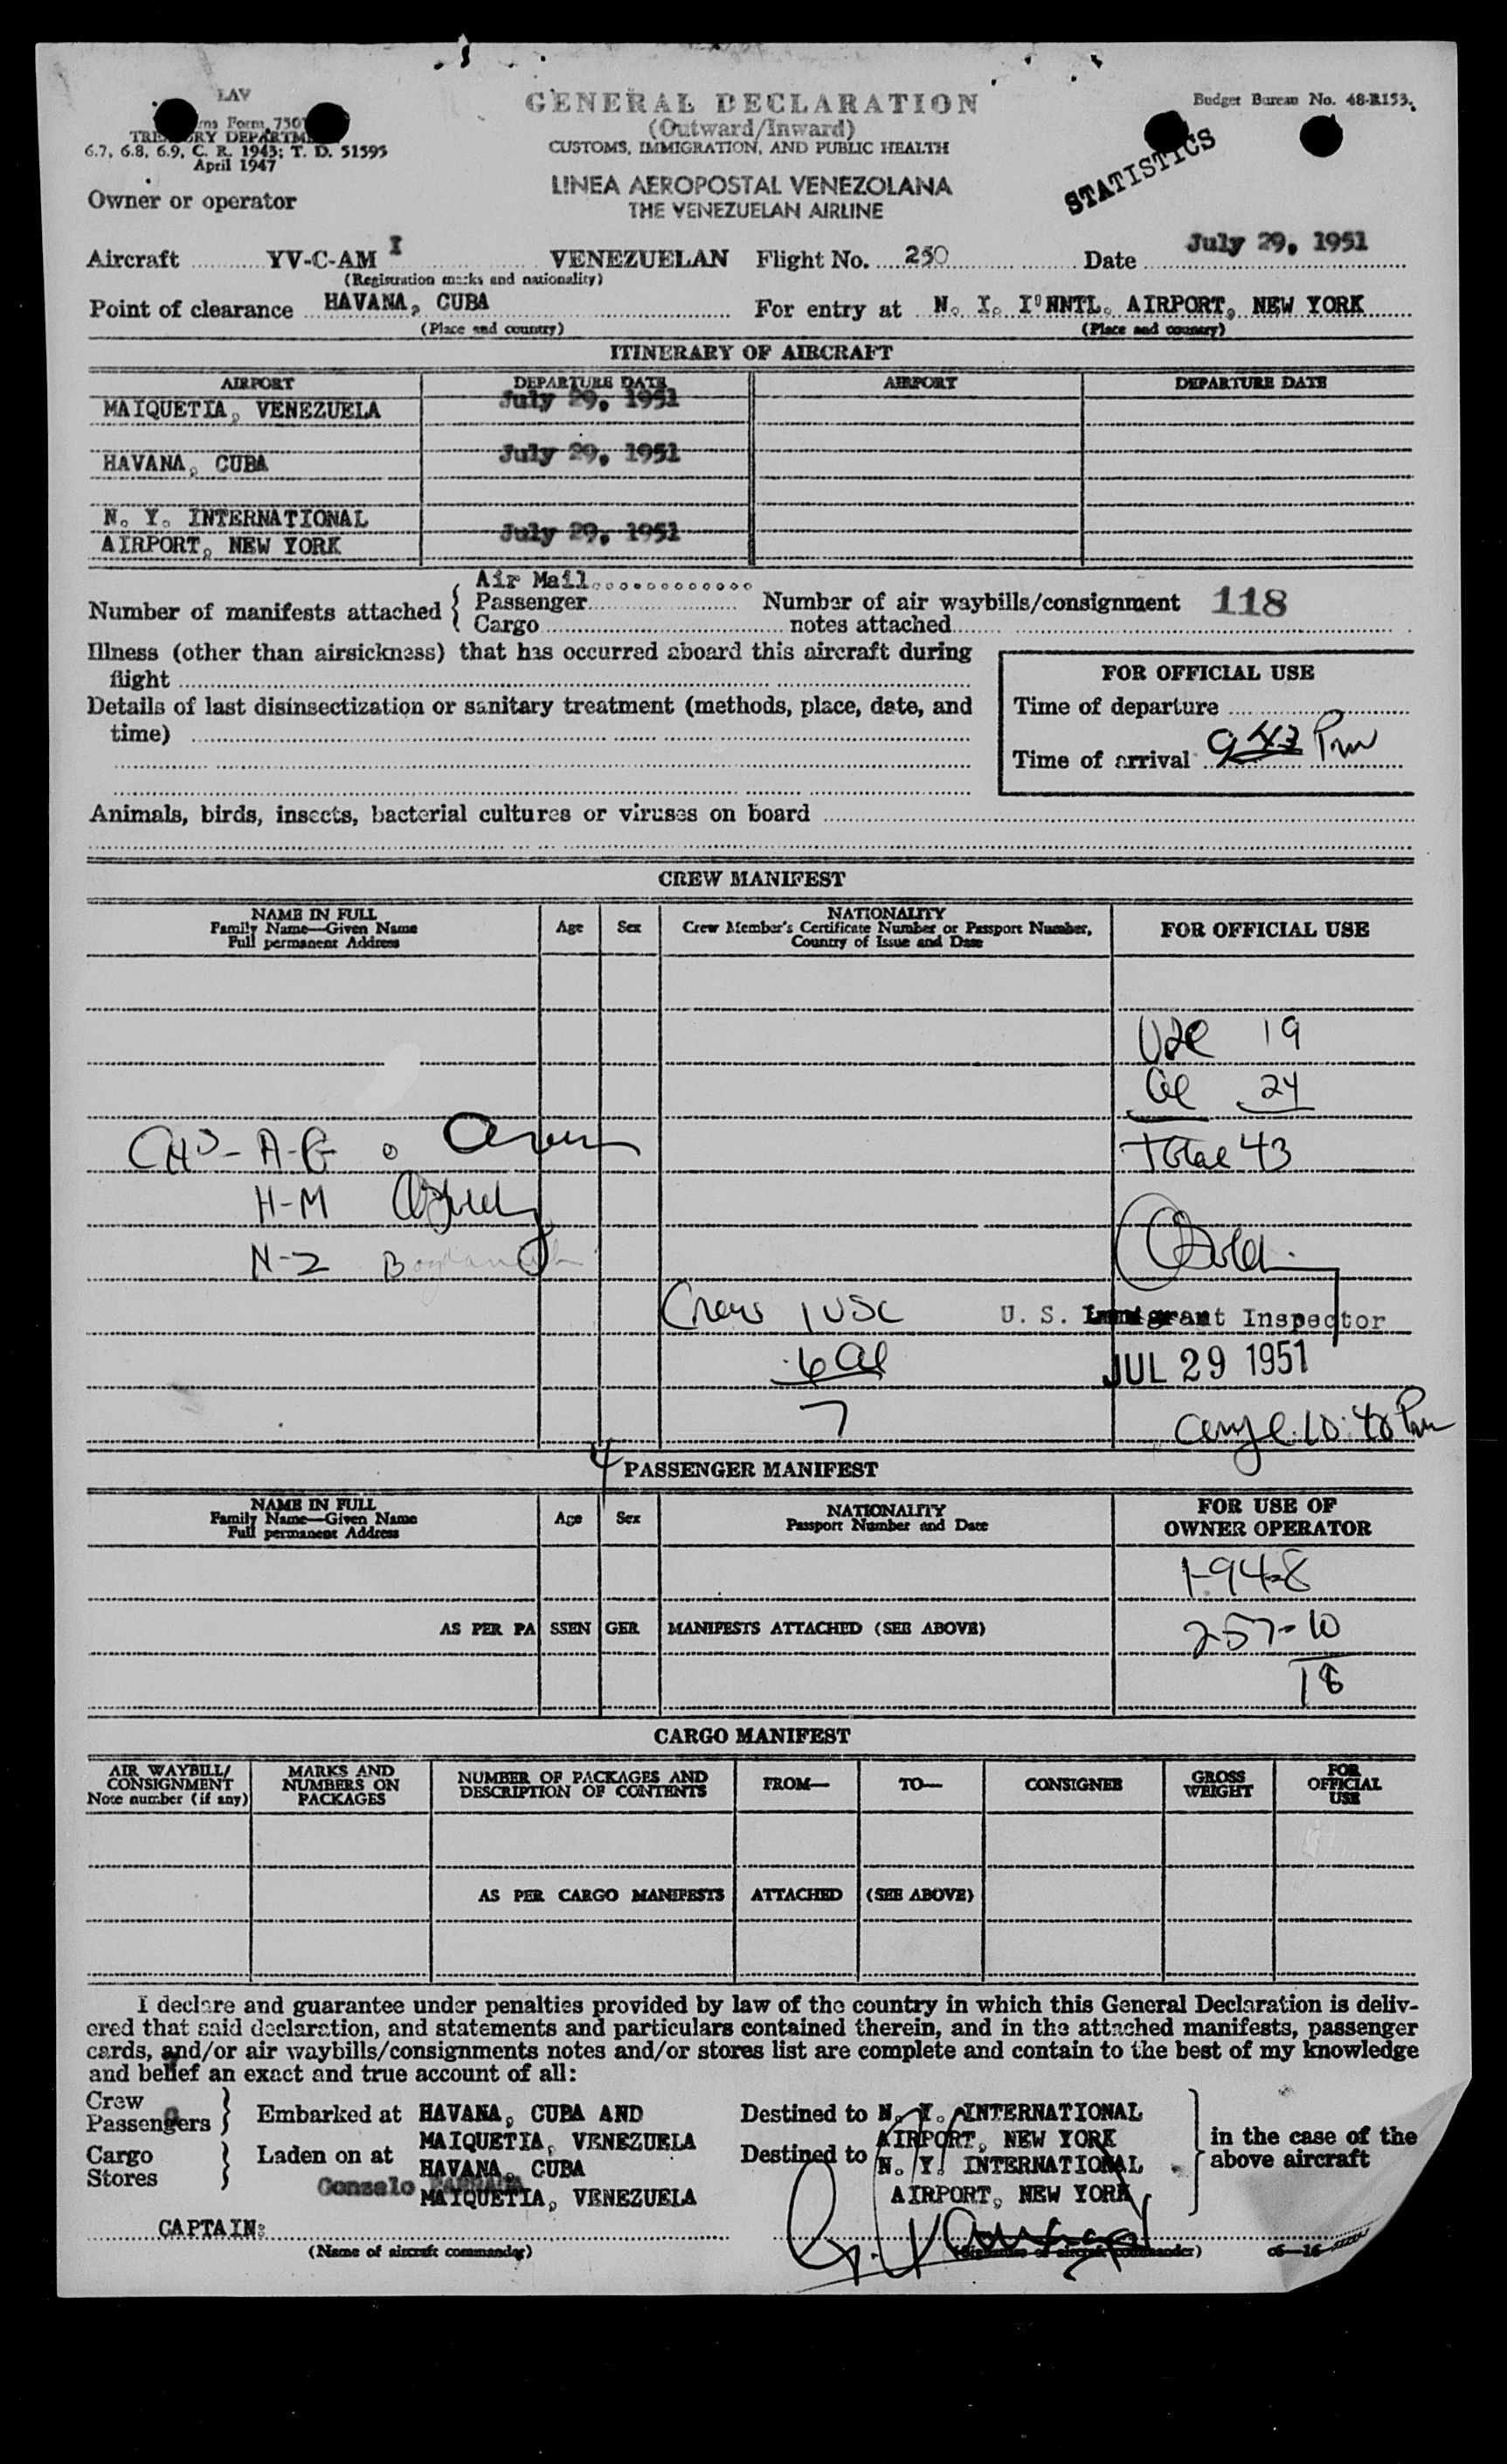 LAV
GENERAL DECLARATION
Budget Bureau No. 48-R153.
Form 750
(Outward/Inward)
TREASURY DEPARTMENT
CUSTOMS, IMMIGRATION, AND PUBLIC HEALTH
6.7, 6.8, 6.9, C. R. 1943; T. D. 51595
April 1947
STATISTICS
LINEA AEROPOSTAL VENEZOLANA
Owner or operator
THE VENEZUELAN AIRLINE
Aircraft YV-C-AM I VENEZUELAN Flight No. 250 Date July 29, 1951
(Registration marks and nationality)
Point of clearance HAVANA, CUBA For entry at N. I. I'HNTL. AIRPORT, NEW YORK
(Place and country) (Place and country)
ITINERARY OF AIRCRAFT
AIRPORT DEPARTURE DATE AIRPORT DEPARTURE DATE
MAIQUETIA, VENEZUELA July 29, 1951
HAVANA, CUBA July 29, 1951
N. Y. INTERNATIONAL
AIRPORT, NEW YORK July 29, 1951
Number of manifests attached { Air Mail
Passenger
Cargo
Number of air waybills/consignment 118
notes attached
Illness (other than airsickness) that has occurred aboard this aircraft during
flight
Details of last disinsectization or sanitary treatment (methods, place, date, and
time)
FOR OFFICIAL USE
Time of departure
Time of arrival 943 Pm
Animals, birds, insects, bacterial cultures or viruses on board
CREW MANIFEST
NAME IN FULL
Family Name—Given Name
Full permanent Address
Age Sex
NATIONALITY
Crew Member's Certificate Number or Passport Number,
Country of Issue and Date
FOR OFFICIAL USE
19
24
Total 43
A-G
H-M
N-Z
Crew 1 USC
6 Al
7
U. S. Immigrant Inspector
JUL 29 1951
10:40 Pm
4
PASSENGER MANIFEST
NAME IN FULL
Family Name—Given Name
Full permanent Address
Age Sex
NATIONALITY
Passport Number and Date
FOR USE OF
OWNER OPERATOR
1-94-8
257-10
18
AS PER PA SSEN GER MANIFESTS ATTACHED (SEE ABOVE)
CARGO MANIFEST
AIR WAYBILL/
CONSIGNMENT
Note number (if any)
MARKS AND
NUMBERS ON
PACKAGES
NUMBER OF PACKAGES AND
DESCRIPTION OF CONTENTS
FROM—
TO—
CONSIGNEE
GROSS
WEIGHT
FOR
OFFICIAL
USE
AS PER CARGO MANIFESTS ATTACHED (SEE ABOVE)
I declare and guarantee under penalties provided by law of the country in which this General Declaration is deliv-
ered that said declaration, and statements and particulars contained therein, and in the attached manifests, passenger
cards, and/or air waybills/consignments notes and/or stores list are complete and contain to the best of my knowledge
and belief an exact and true account of all:
Crew
Passengers } Embarked at HAVANA, CUBA AND
MAIQUETIA, VENEZUELA
Destined to N. Y. INTERNATIONAL
AIRPORT, NEW YORK
Cargo
Stores } Laden on at HAVANA, CUBA
MAIQUETIA, VENEZUELA
Destined to N. Y. INTERNATIONAL
AIRPORT, NEW YORK
in the case of the
above aircraft
Gonzalo
CAPTAIN:
(Name of aircraft commander) (Signature of aircraft commander)